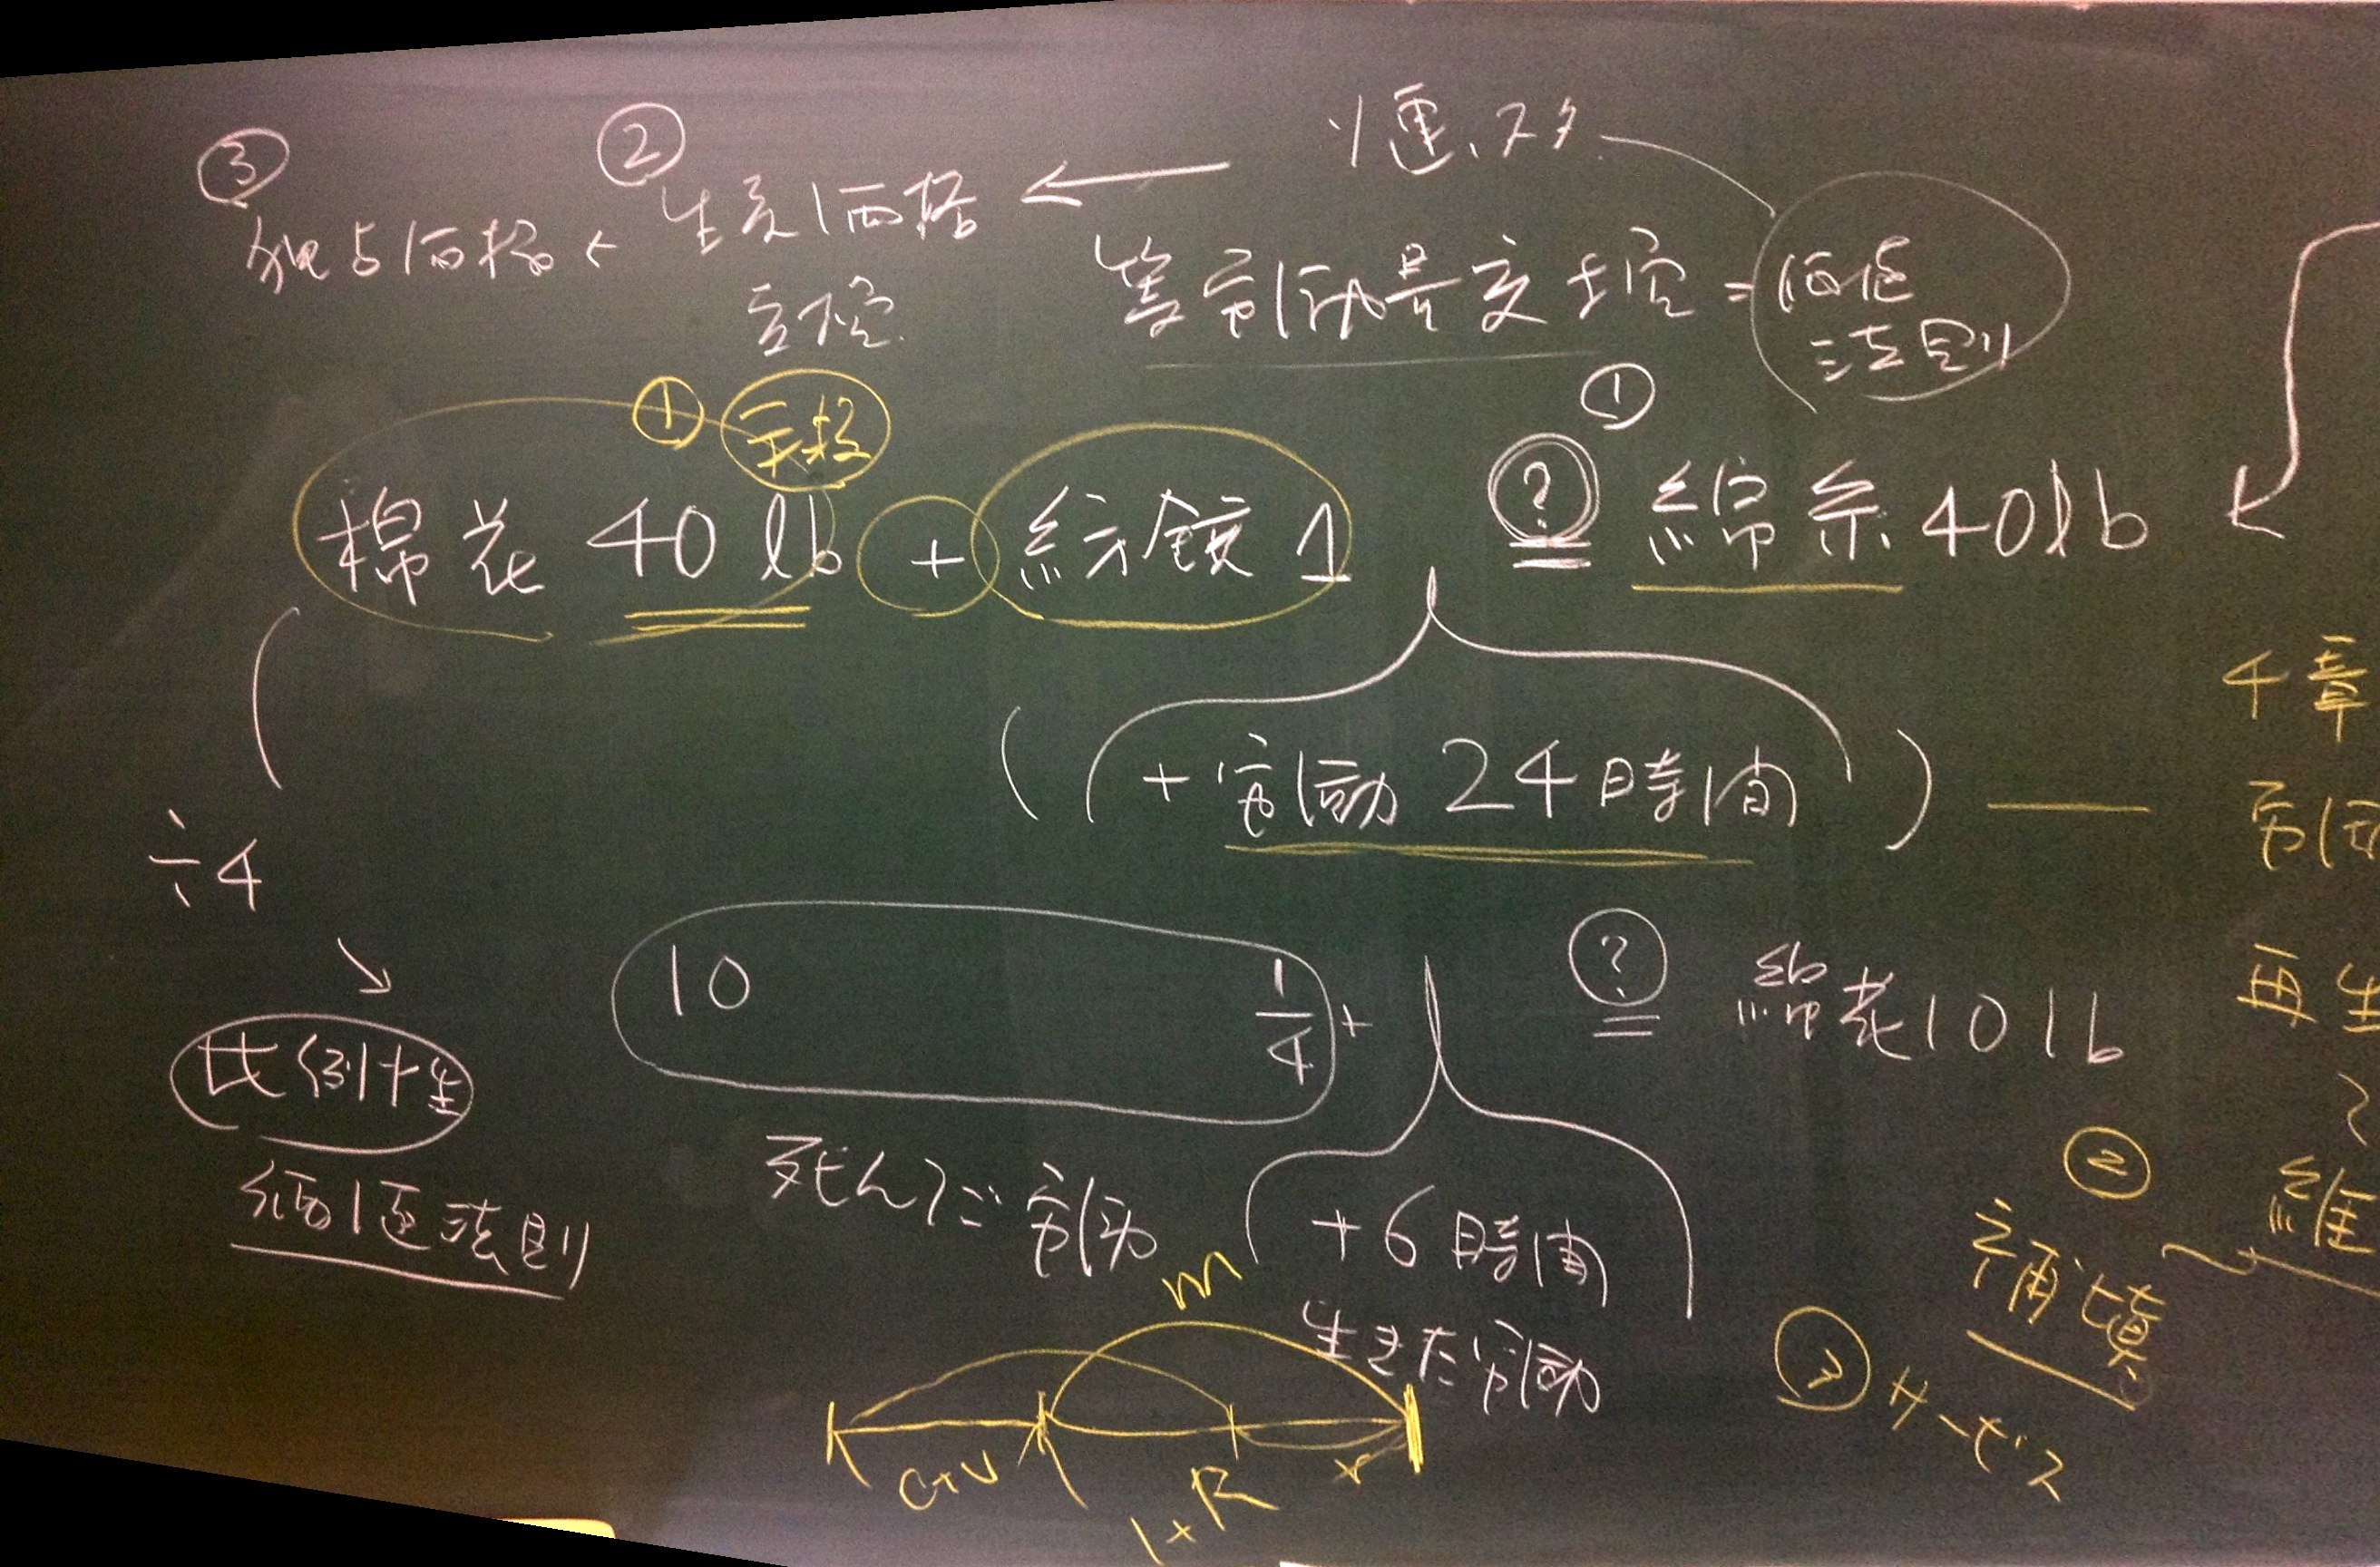 ③ ②
独占価格 ← 生産価格 ←
等労働量交換 = 価値
法則
① ①
棉花 40 lb + 紡錘 1 ? = 綿糸 40lb
4章
( + 労働 24時間 ) —
÷4
再生
10 1/4 + ? = 綿花 10 lb
比例性
価値法則
死んだ労働
+6時間
生きた労働
②
補填
維
③ サービス
m
C+V
1+R
r